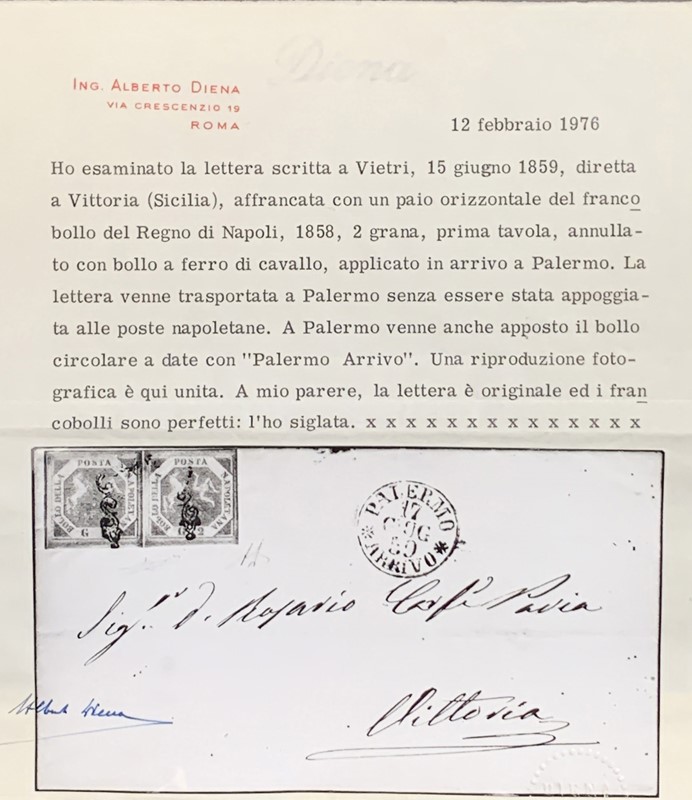 Diena
ING. ALBERTO DIENA
VIA CRESCENZIO 19
ROMA
12 febbraio 1976
Ho esaminato la lettera scritta a Vietri, 15 giugno 1859, diretta
a Vittoria (Sicilia), affrancata con un paio orizzontale del franco
bollo del Regno di Napoli, 1858, 2 grana, prima tavola, annulla-
to con bollo a ferro di cavallo, applicato in arrivo a Palermo. La
lettera venne trasportata a Palermo senza essere stata appoggia-
ta alle poste napoletane. A Palermo venne anche apposto il bollo
circolare a date con "Palermo Arrivo". Una riproduzione foto-
grafica è qui unita. A mio parere, la lettera è originale ed i fran
cobolli sono perfetti: l'ho siglata. x x x x x x x x x x x x x x
BOLLO DELLA POSTA NAPOLETANA
G
BOLLO DELLA POSTA NAPOLETANA
G 2
PALERMO
17
GIUG
59
ARRIVO
Sig.r D. Rosario
Vittoria
Alberto Diena
DIENA